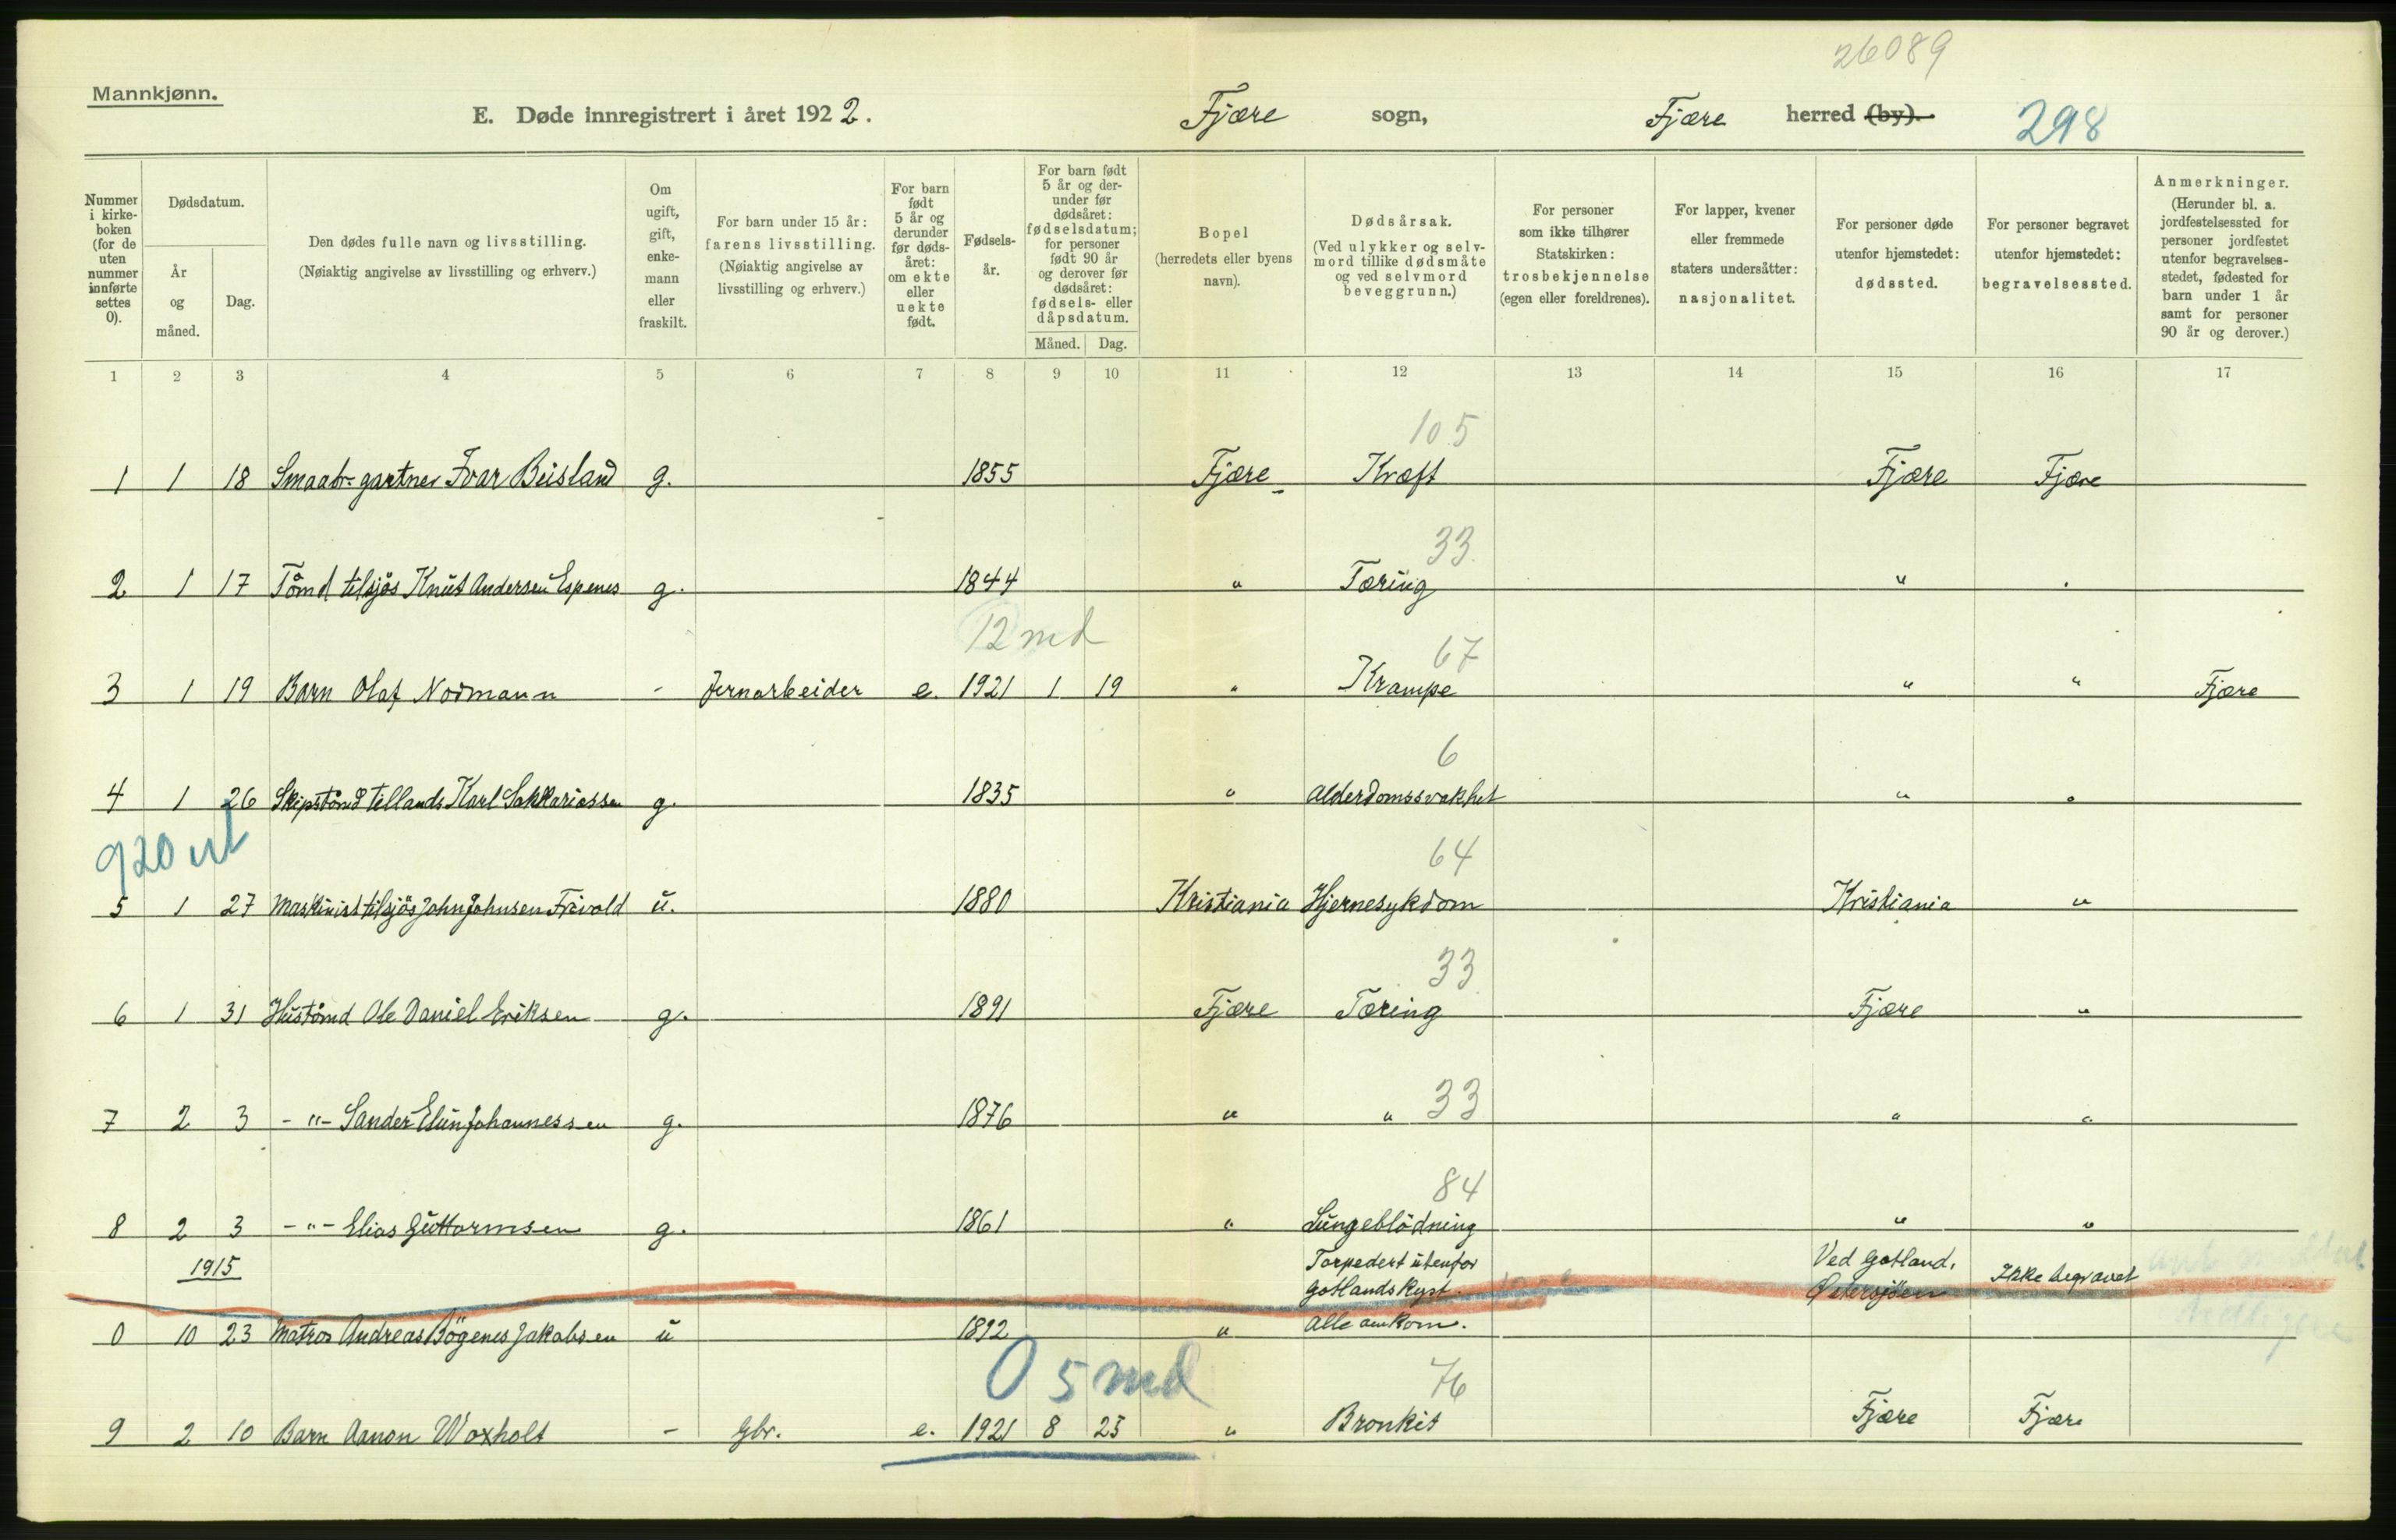 26089
Mannkjønn.
E. Døde innregistrert i året 1922. Fjære sogn, Fjære herred (by). 298
Nummer i kirke-boken (for de uten nummer innførte settes 0).
Dødsdatum.
År og måned.
Dag.
Den dødes fulle navn og livsstilling.
(Nøiaktig angivelse av livsstilling og erhverv.)
Om ugift, gift, enke-mann eller fraskilt.
For barn under 15 år: farens livsstilling. (Nøiaktig angivelse av livsstilling og erhverv.)
For barn født 5 år og derunder før døds-året: om ekte eller uekte født.
Fødsels-år.
For barn født 5 år og der-under før dødsåret: fødselsdatum; for personer født 90 år og derover før dødsåret: fødsels- eller dåpsdatum.
Måned. Dag.
Bopel (herredets eller byens navn).
Dødsårsak. (Ved ulykker og selv-mord tillike dødsmåte og ved selvmord beveggrunn.)
For personer som ikke tilhører Statskirken: trosbekjennelse (egen eller foreldrenes).
For lapper, kvener eller fremmede staters undersåtter: nasjonalitet.
For personer døde utenfor hjemstedet: dødssted.
For personer begravet utenfor hjemstedet: begravelsessted.
Anmerkninger. (Herunder bl. a. jordfestelsessted for personer jordfestet utenfor begravelses-stedet, fødested for barn under 1 år samt for personer 90 år og derover.)
1 2 3 4 5 6 7 8 9 10 11 12 13 14 15 16 17
105
1 1 18 Smaabr-gartner Ivar Beisland g. 1855 Fjære Kræft Fjære Fjære
33
2 1 17 Tømd tilsjøs Knut Andersen Espenes g. 1844 " Tæring " "
12 md 67
3 1 19 Barn Olaf Normann - Jernarbeider e. 1921 1 19 " Krampe " " Fjære
6
4 1 26 Skipstømd tillands Karl Sakkariassen g. 1835 " Alderdomssvakhet " "
920 ut 64
5 1 27 Maskinist tilsjøs John Johnsen Frivold u. 1880 Kristiania Hjernesykdom Kristiania "
33
6 1 31 Hustømd Ole Daniel Eriksen g. 1891 Fjære Tæring Fjære "
33
7 2 3 -"- Sander Elias Johannessen g. 1876 " " " "
84
8 2 3 -"- Elias Guttormsen g. 1861 " Lungeblødning " "
1915 Torpedert utenfor Gotlands Kyst. Ved Gotland, Østersjøen Ikke begravet
0 10 23 Matros Andreas Bøgenes Jakobsen u 1892 " Alle omkom.
0 5 md 76
9 2 10 Barn Aanon Woxholt - Gbr. e. 1921 8 25 " Bronkit Fjære Fjære